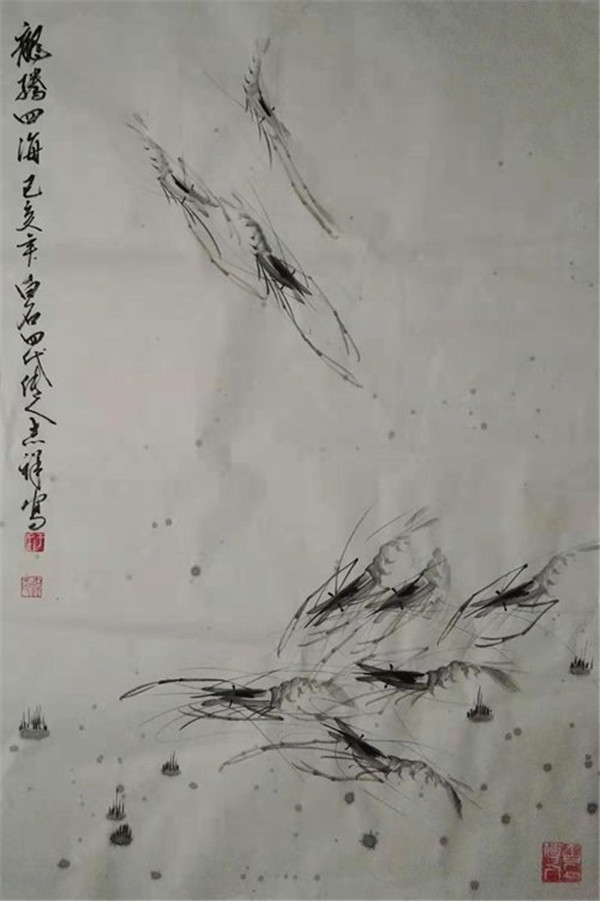 龍騰四海己亥年白石四代传人志祥写